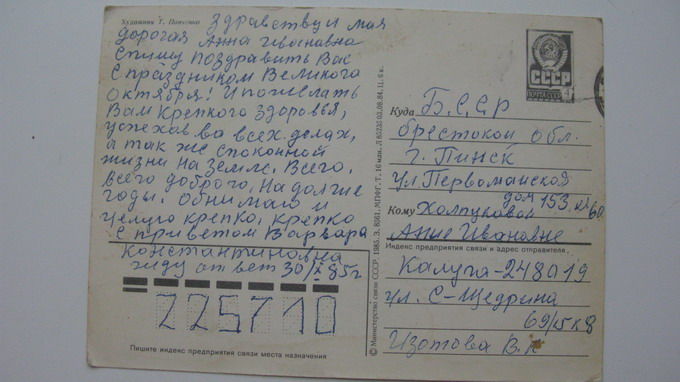 Художник Т. Панченко
Здравствуй моя
дорогая Анна Ивановна
Спишу поздравить Вас
с праздником Великого
октября! И пожелать
Вам крепкого здоровья,
успехов во всех делах,
а так же спокойной
жизни на земле. Всего,
всего доброго, на долгие
годы. Обнимаю и
целую крепко, крепко
с приветом Варвара
Константиновна
жду ответ 30/X 85г
225710
Пишите индекс предприятия связи места назначения
© Министерство связи СССР. 1985. З. 8581. МПФГ. Т. 16 млн.
СССР
ПОЧТА СССР
Куда Б.ССР
брестской обл.
г. Пинск
ул Первомайская
дом 153. кв 60
Кому Холпуковой
Анне Ивановне
Индекс предприятия связи и адрес отправителя
Калуга-248019
ул. С-Щедрина
69/5 к 8
Изотова В.К